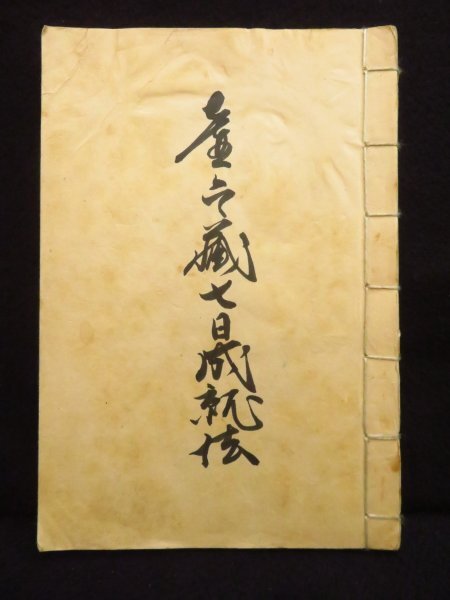 虚空藏七日成就法